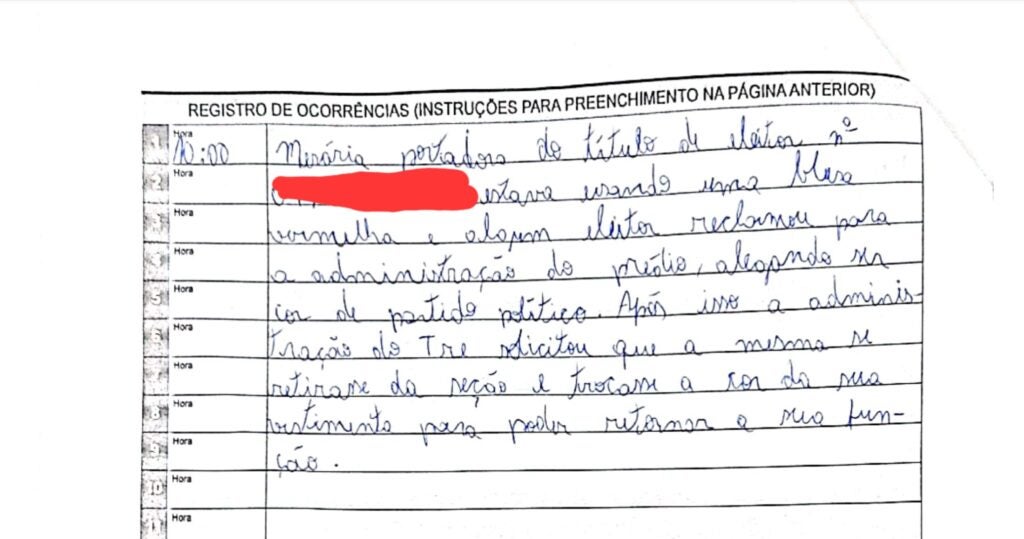 REGISTRO DE OCORRÊNCIAS (INSTRUÇÕES PARA PREENCHIMENTO NA PÁGINA ANTERIOR)
1 Hora 10:00 Mesária portadora do título de eleitor nº
2 Hora estava usando uma blusa
3 Hora vermelha e algum eleitor reclamou para
Hora a administração do prédio, alegando ser
5 Hora cor de partido político. Após isso a adminis-
6 Hora tração do Tre solicitou que a mesma se
7 Hora retirasse da seção e trocasse a cor da sua
8 Hora vestimenta para poder retornar a sua fun-
9 Hora ção.
10 Hora
Hora